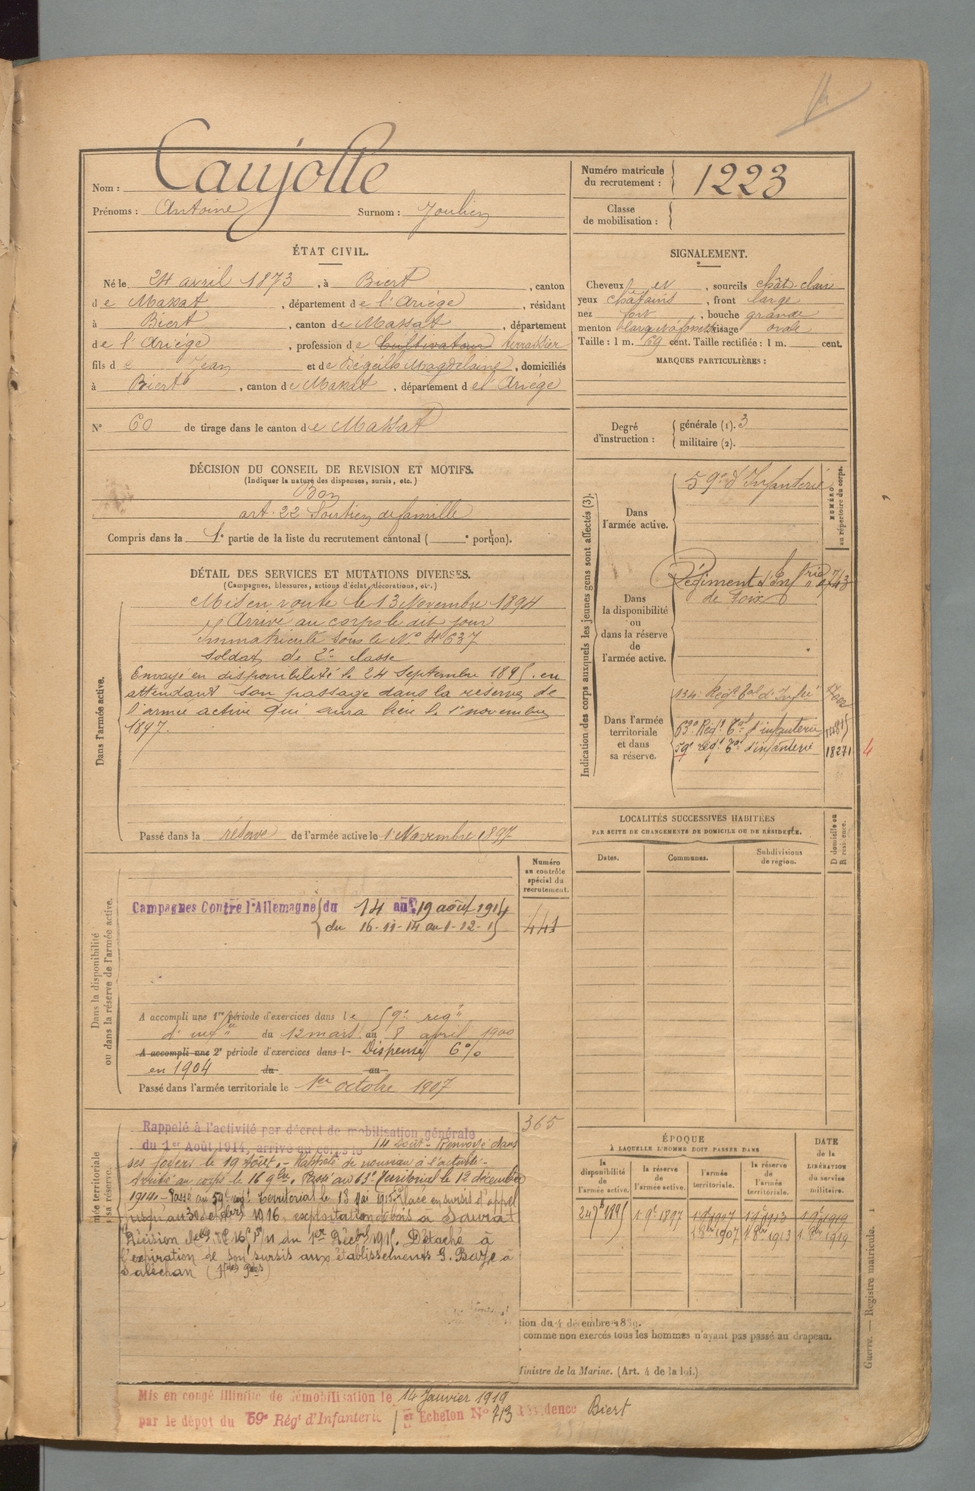 Nom : Caujolle
Prénoms : Antoine Surnom :
Numéro matricule du recrutement : 1223
Classe de mobilisation :
ÉTAT CIVIL.
Né le 24 avril 1873, à Biert, canton
de Massat, département de l'Ariège, résidant
à Biert, canton de Massat, département
de l'Ariège, profession de Cultivateur terrassier
fils de Jean et de Magdelaine, domiciliés
à Biert, canton de Massat, département de l'Ariège
N° 60 de tirage dans le canton de Massat
SIGNALEMENT.
Cheveux et, sourcils chât. clair
yeux châtains, front large
nez fort, bouche grande
menton visage ovale
Taille : 1 m. 69 cent. Taille rectifiée : 1 m. cent.
MARQUES PARTICULIÈRES :
Degré d'instruction : générale (1). 3
militaire (2).
DÉCISION DU CONSEIL DE REVISION ET MOTIFS.
(Indiquer la nature des dispenses, sursis, etc.)
Bon
art. 22 Soutien de famille
Compris dans la 1e partie de la liste du recrutement cantonal ( e portion).
DÉTAIL DES SERVICES ET MUTATIONS DIVERSES.
(Campagnes, blessures, actions d'éclat, décorations, etc.)
Dans l'armée active.
Mis en route le 13 Novembre 1894
Arrivé au corps le dit jour
Immatriculé sous le N° 4637
soldat de 2e classe
Envoyé en disponibilité le 24 Septembre 1895, en
attendant son passage dans la réserve de
l'armée active qui aura lieu le 1er novembre
1897.
Passé dans la réserve de l'armée active le 1 Novembre 1897
Indication des corps auxquels les jeunes gens sont affectés (3).
NUMÉRO au répertoire du corps.
Dans l'armée active.
59e d'Infanterie
Dans la disponibilité ou dans la réserve de l'armée active.
Régiment d'Infrie
de Foix
Dans l'armée territoriale et dans sa réserve.
134e Régt Tal d'Infie
63e Régt Tal d'infanterie
59e régt Tal d'infanterie 18271
4
LOCALITÉS SUCCESSIVES HABITÉES
PAR SUITE DE CHANGEMENTS DE DOMICILE OU DE RÉSIDENCE.
Dates. Communes. Subdivisions de région. D domicile ou R résidence.
Dans la disponibilité ou dans la réserve de l'armée active.
Numéro au contrôle spécial du recrutement.
441
Campagnes Contre l'Allemagne du 14 au 19 août 1914
du 16-11-14 au 1-12-15
A accompli une 1re période d'exercices dans le 59e régt
d'infie du 12 mars au 8 avril 1900
A accompli une 2e période d'exercices dans l- Dispensé 6%
en 1904 du au
Passé dans l'armée territoriale le 1er octobre 1907
365
Rappelé à l'activité par décret de mobilisation générale
du 1er Août 1914, arrivé au corps le 14 août - Renvoyé dans
ses foyers le 19 Août. - Rappelé de nouveau à l'activité -
Arrivé au corps le 16 9bre. Passé au 63e Territorial le 12 décembre
1914. - Passé au 59e régt Territorial le 18 Mai 1915. Placé en sursis d'appel
jusqu'au 30 1916, exploitation de bois à Saurat
Décision du 1er Xbre 1915. Détaché à
l'expiration de son sursis aux établissements G. Baze à
Saléchan (Htes Pnées)
ÉPOQUE
À LAQUELLE L'HOMME DOIT PASSER DANS
la disponibilité de l'armée active. la réserve de l'armée active. l'armée territoriale. la réserve de l'armée territoriale. DATE de la LIBÉRATION du service militaire.
24 7bre 1895 1 9bre 1897 1 9bre 1907 1 9bre 1913 1 9bre 1919
1 8bre 1907 1 8bre 1913 1 8bre 1919
tion du 4 décembre 1889.
comme non exercés tous les hommes n'ayant pas passé au drapeau.
Ministre de la Marine. (Art. 4 de la loi.)
Guerre. — Registre matricule. 1
Mis en congé illimité de démobilisation le 14 Janvier 1919
par le dépôt du 59e Rég d'Infanterie Echelon N° 713 Résidence Biert